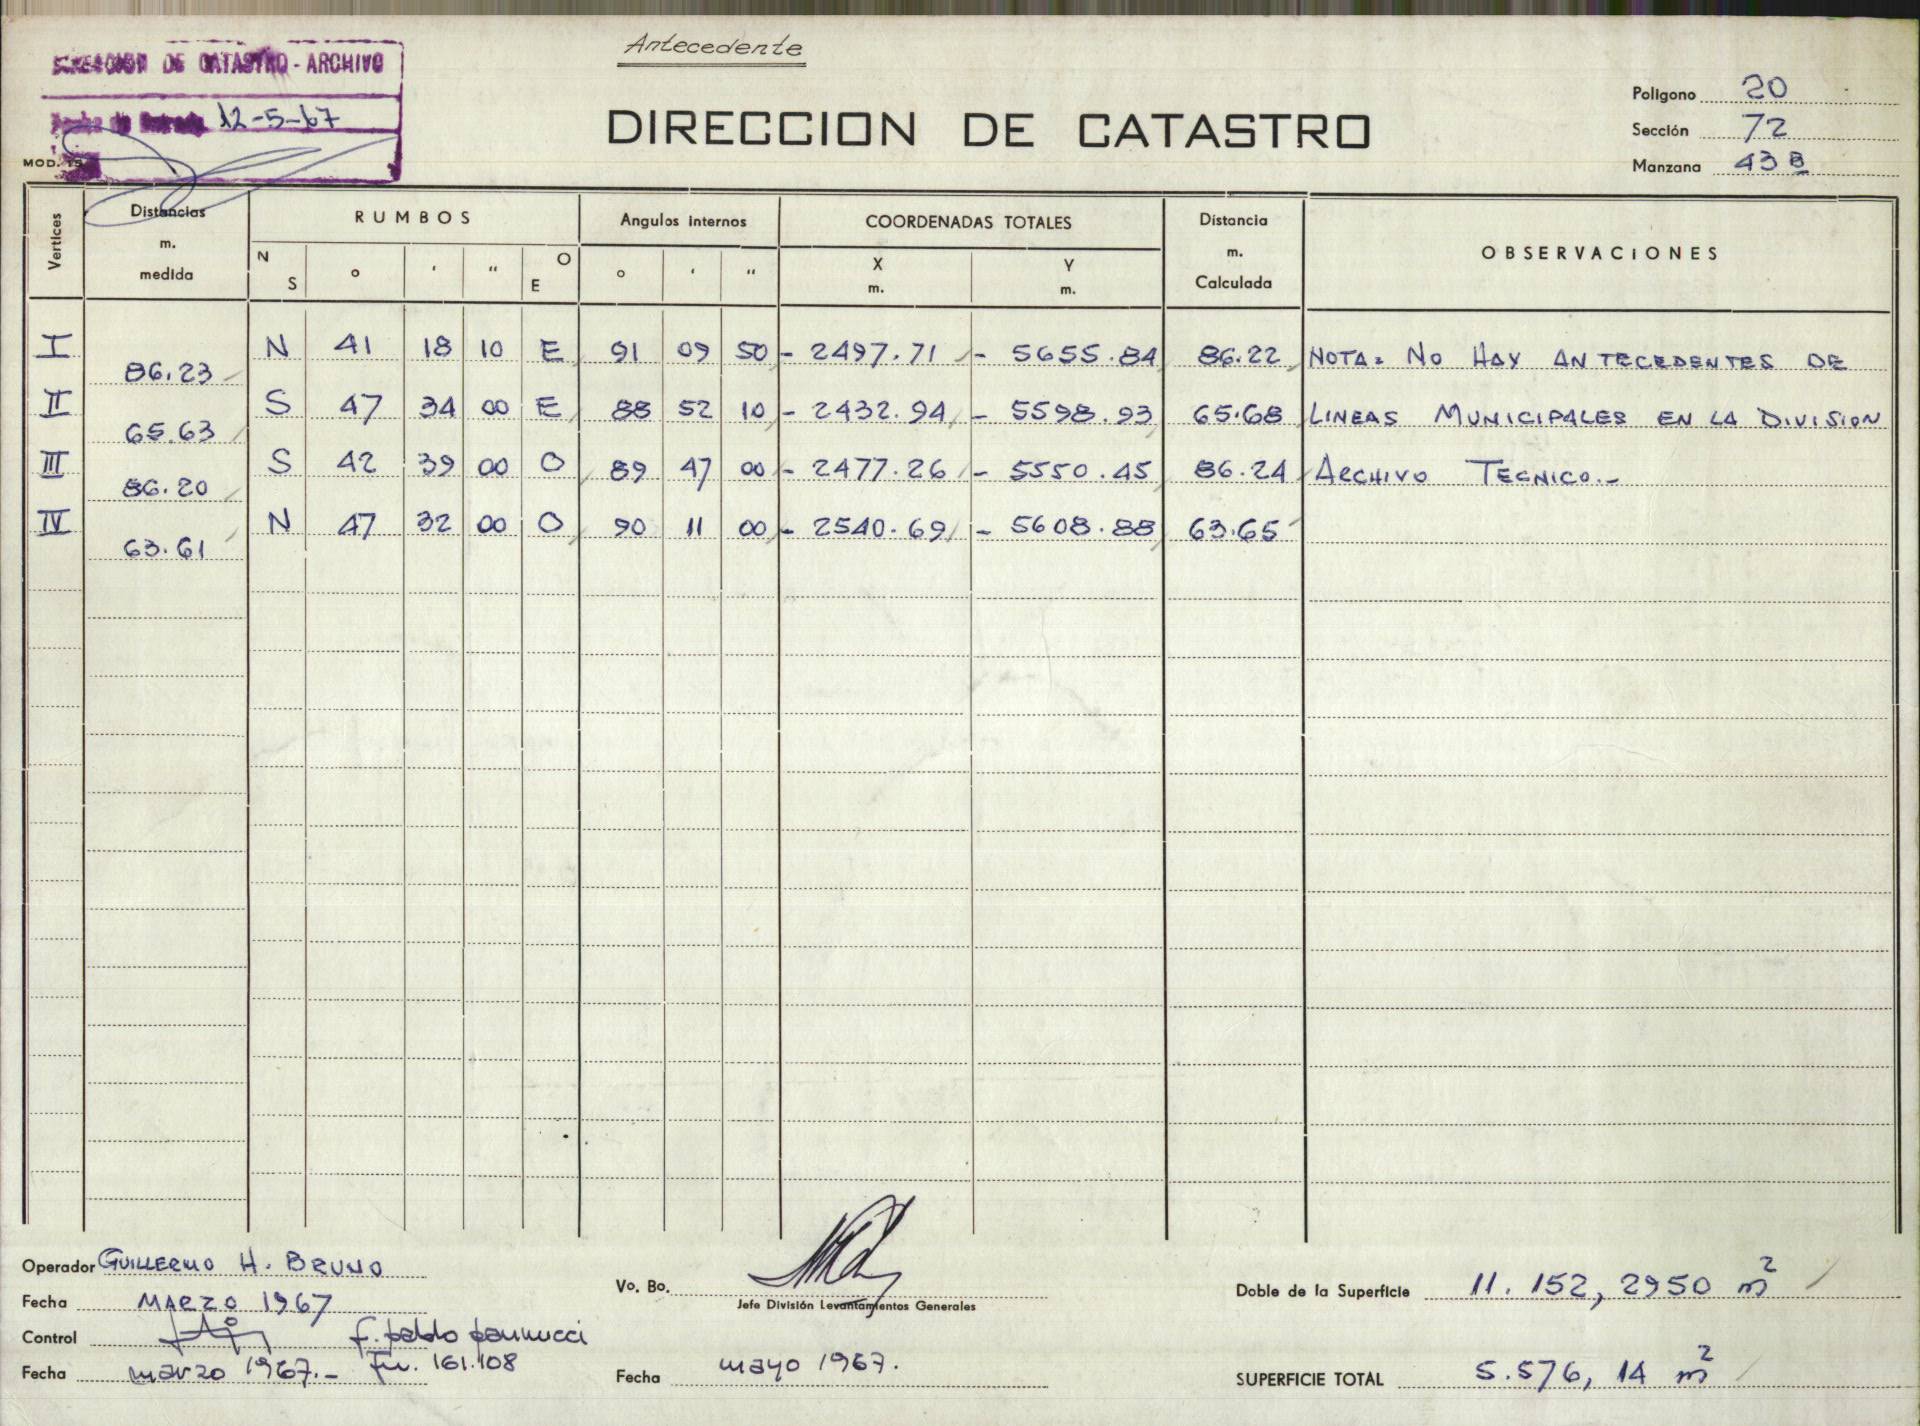 Antecedente
DIRECCION DE CATASTRO - ARCHIVO
Fecha de Entrada 12-5-67
MOD. 15
DIRECCION DE CATASTRO
Poligono 20
Sección 72
Manzana 43 B
Vertices Distancias m. medida RUMBOS Angulos internos COORDENADAS TOTALES Distancia m. Calculada OBSERVACIONES
N S ° ' " O E ° ' " X m. Y m.
I 86.23 N 41 18 10 E 91 09 50 - 2497.71 - 5655.84 86.22 NOTA: NO HAY ANTECEDENTES DE
II 65.63 S 47 34 00 E 88 52 10 - 2432.94 - 5598.93 65.68 LINEAS MUNICIPALES EN LA DIVISION
III 86.20 S 42 39 00 O 89 47 00 - 2477.26 - 5550.45 86.24 ARCHIVO TECNICO.-
IV 63.61 N 47 32 00 O 90 11 00 - 2540.69 - 5608.88 63.65
Operador GUILLERMO H. BRUNO
Fecha MARZO 1967
Control f. pablo pannucci
Fecha marzo 1967.- 161.108
Vo. Bo.
Jefe División Levantamientos Generales
Fecha mayo 1967.
Doble de la Superficie 11.152,2950 m²
SUPERFICIE TOTAL 5.576,14 m²